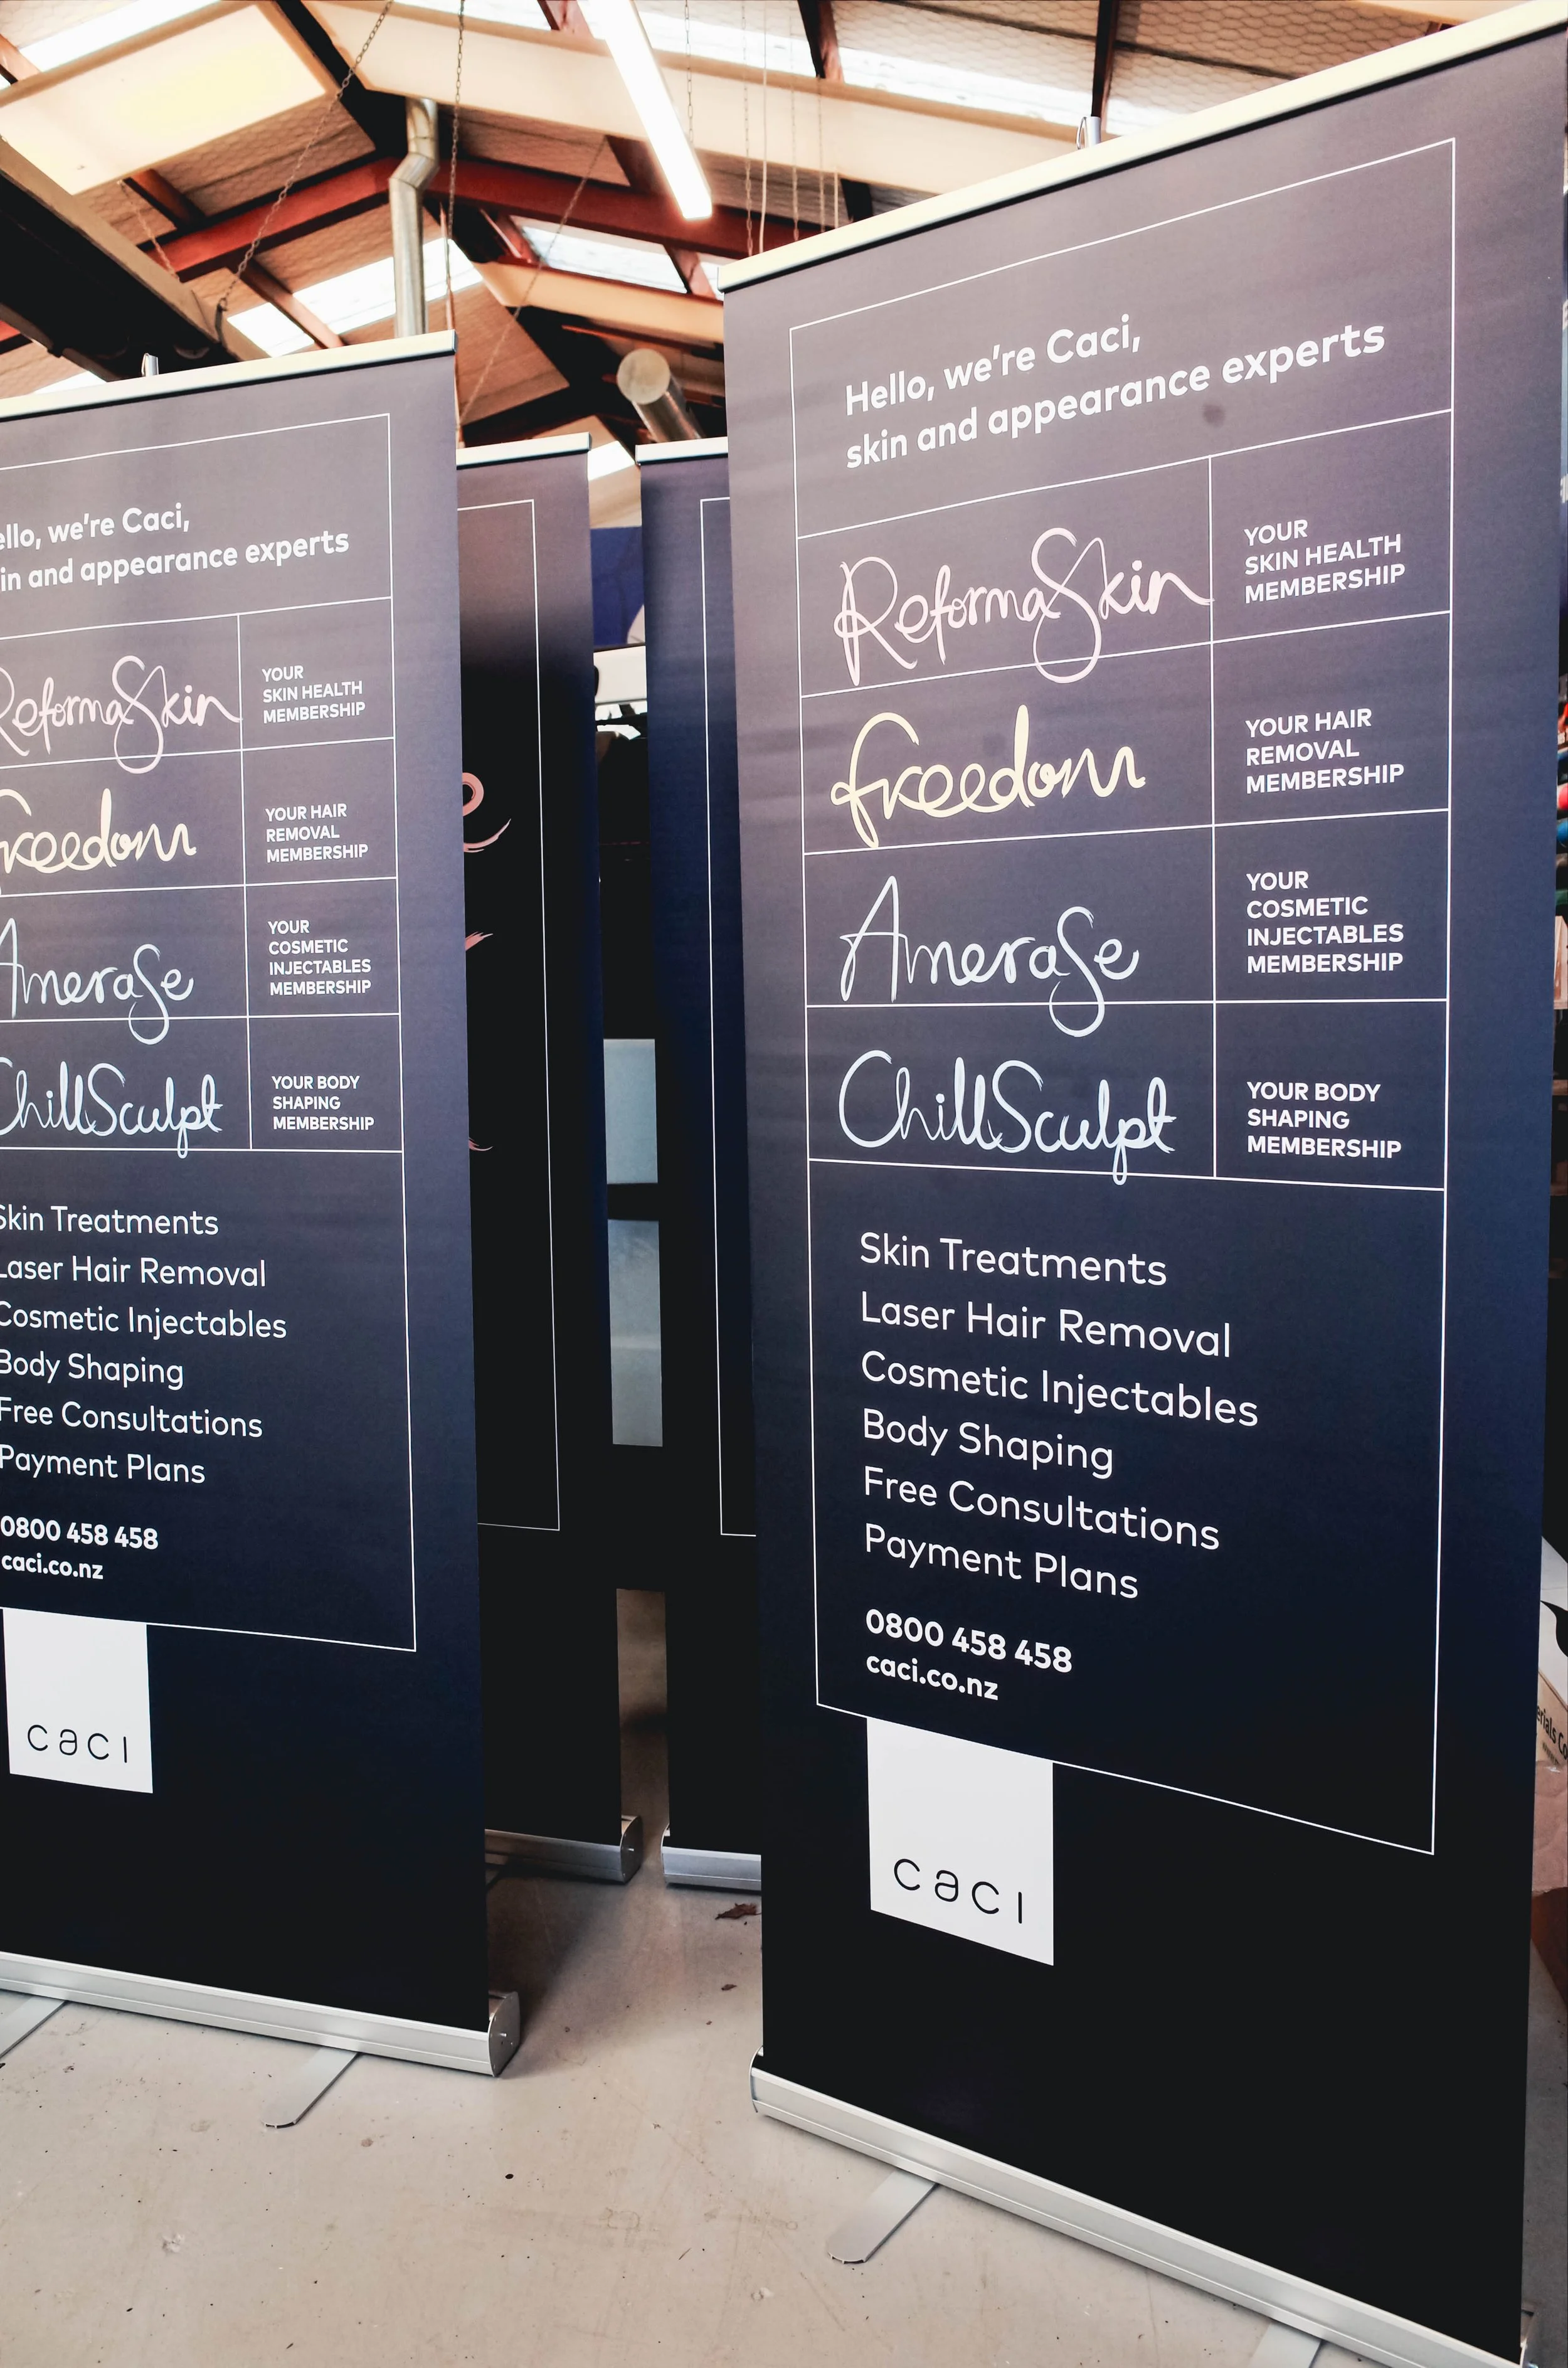 Hello, we're Caci,
skin and appearance experts
ReformaSkin
YOUR
SKIN HEALTH
MEMBERSHIP
freedom
YOUR HAIR
REMOVAL
MEMBERSHIP
Amerase
YOUR
COSMETIC
INJECTABLES
MEMBERSHIP
ChillSculpt
YOUR BODY
SHAPING
MEMBERSHIP
Skin Treatments
Laser Hair Removal
Cosmetic Injectables
Body Shaping
Free Consultations
Payment Plans
0800 458 458
caci.co.nz
caci
ello, we're Caci,
in and appearance experts
ReformaSkin
YOUR
SKIN HEALTH
MEMBERSHIP
freedom
YOUR HAIR
REMOVAL
MEMBERSHIP
Amerase
YOUR
COSMETIC
INJECTABLES
MEMBERSHIP
ChillSculpt
YOUR BODY
SHAPING
MEMBERSHIP
Skin Treatments
Laser Hair Removal
Cosmetic Injectables
Body Shaping
Free Consultations
Payment Plans
0800 458 458
caci.co.nz
caci